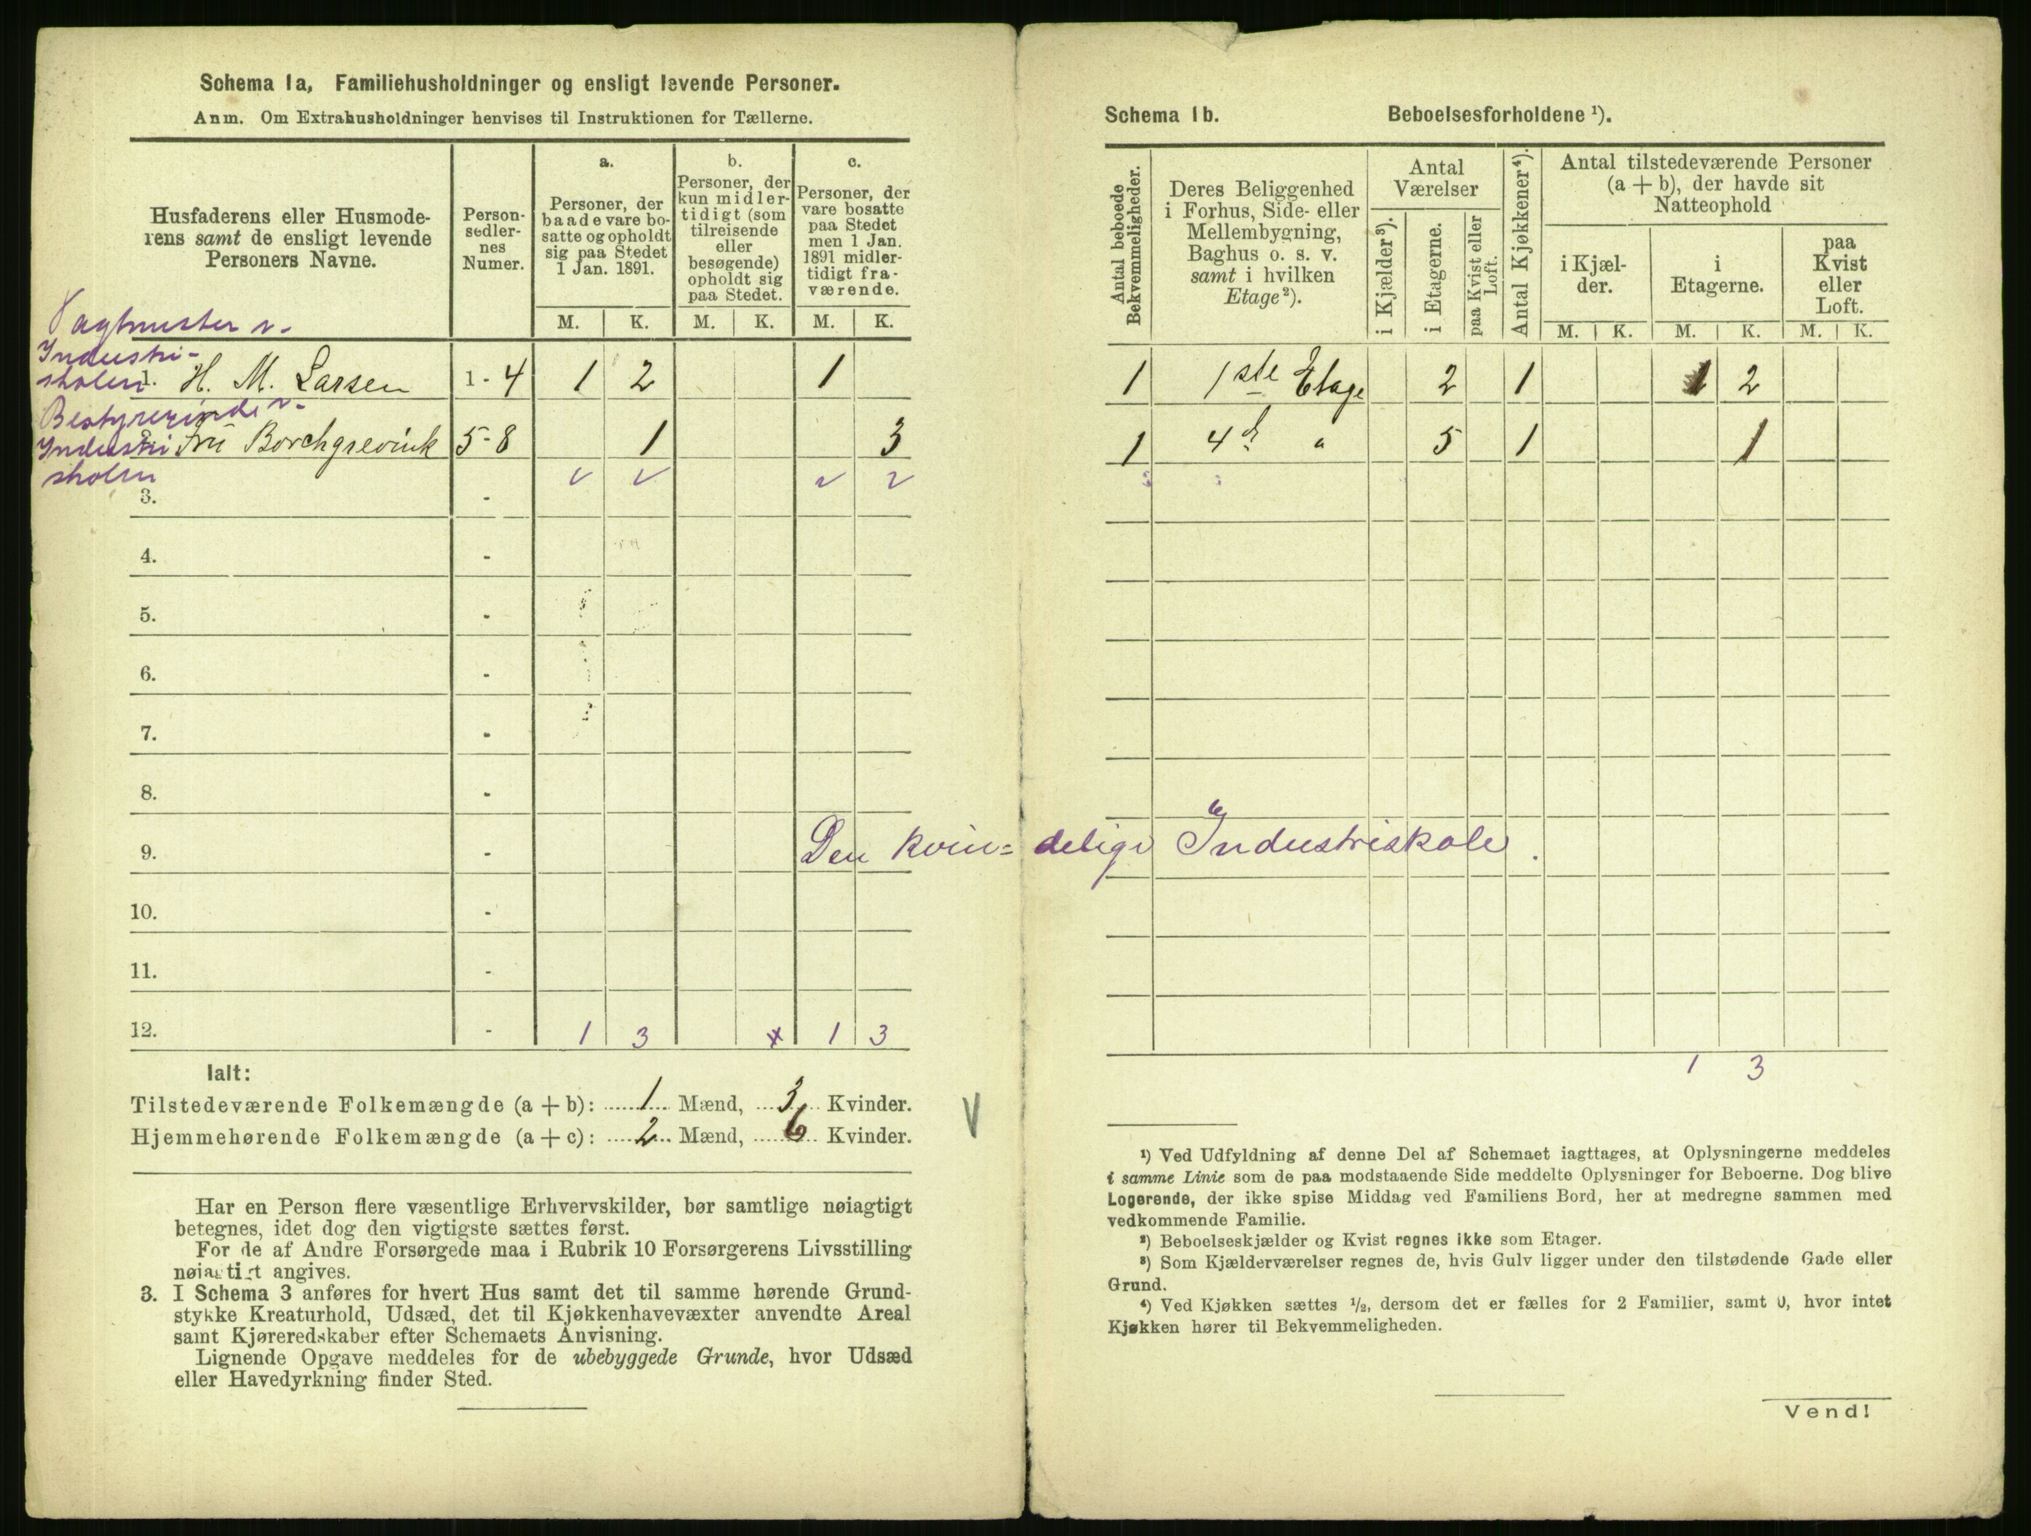 Schema 1a, Familiehusholdninger og ensligt levende Personer.
Anm. Om Extrahusholdninger henvises til Instruktionen for Tællerne.
Husfaderens eller Husmode-
rens samt de ensligt levende
Personers Navne.
Person-
sedler-
nes
Numer.
a.
Personer, der
baade vare bo-
satte og opholdt
sig paa Stedet
1 Jan. 1891.
b.
Personer, der
kun midler-
tidigt (som
tilreisende
eller
besøgende)
opholdt sig
paa Stedet.
c.
Personer, der
vare bosatte
paa Stedet
men 1 Jan.
1891 midler-
tidigt fra-
værende.
M. K. M. K. M. K.
Vagtmester v.
Industri-
skolen
1. H. M. Larsen 1 - 4 1 2 1
Bestyrerinde v.
Industri
skolen
2. Fru Borchgrevink 5 - 8 1 3
3. -
4. -
5. -
6. -
7. -
8. -
9.
10. -
11. -
12. - 1 3 x 1 3
Ialt:
Tilstedeværende Folkemængde (a + b): 1 Mænd, 3 Kvinder.
Hjemmehørende Folkemængde (a + c): 2 Mænd, 6 Kvinder.
V
Har en Person flere væsentlige Erhvervskilder, bør samtlige nøiagtigt
betegnes, idet dog den vigtigste sættes først.
For de af Andre Forsørgede maa i Rubrik 10 Forsørgerens Livsstilling
nøiagtigt angives.
3. I Schema 3 anføres for hvert Hus samt det til samme hørende Grund-
stykke Kreaturhold, Udsæd, det til Kjøkkenhavevæxter anvendte Areal
samt Kjøreredskaber efter Schemaets Anvisning.
Lignende Opgave meddeles for de ubebyggede Grunde, hvor Udsæd
eller Havedyrkning finder Sted.
Schema 1b. Beboelsesforholdene ¹).
Antal beboede
Bekvemmeligheder.
Deres Beliggenhed
i Forhus, Side- eller
Mellembygning,
Baghus o. s. v.
samt i hvilken
Etage ²).
Antal
Værelser
i Kjælder ³).
i Etagerne.
paa Kvist eller
Loft.
Antal Kjøkkener ⁴).
Antal tilstedeværende Personer
(a + b), der havde sit
Natteophold
i Kjæl-
der.
i
Etagerne.
paa
Kvist
eller
Loft.
M. K. M. K. M. K.
1 1ste Etage 2 1 1 2
1 4d " 5 1 1
Den kvin= delige Industriskole.
1 3
¹) Ved Udfyldning af denne Del af Schemaet iagttages, at Oplysningerne meddeles
i samme Linie som de paa modstaaende Side meddelte Oplysninger for Beboerne. Dog blive
Logerende, der ikke spise Middag ved Familiens Bord, her at medregne sammen med
vedkommende Familie.
²) Beboelseskjælder og Kvist regnes ikke som Etager.
³) Som Kjælderværelser regnes de, hvis Gulv ligger under den tilstødende Gade eller
Grund.
⁴) Ved Kjøkken sættes ½, dersom det er fælles for 2 Familier, samt 0, hvor intet
Kjøkken hører til Bekvemmeligheden.
Vend!